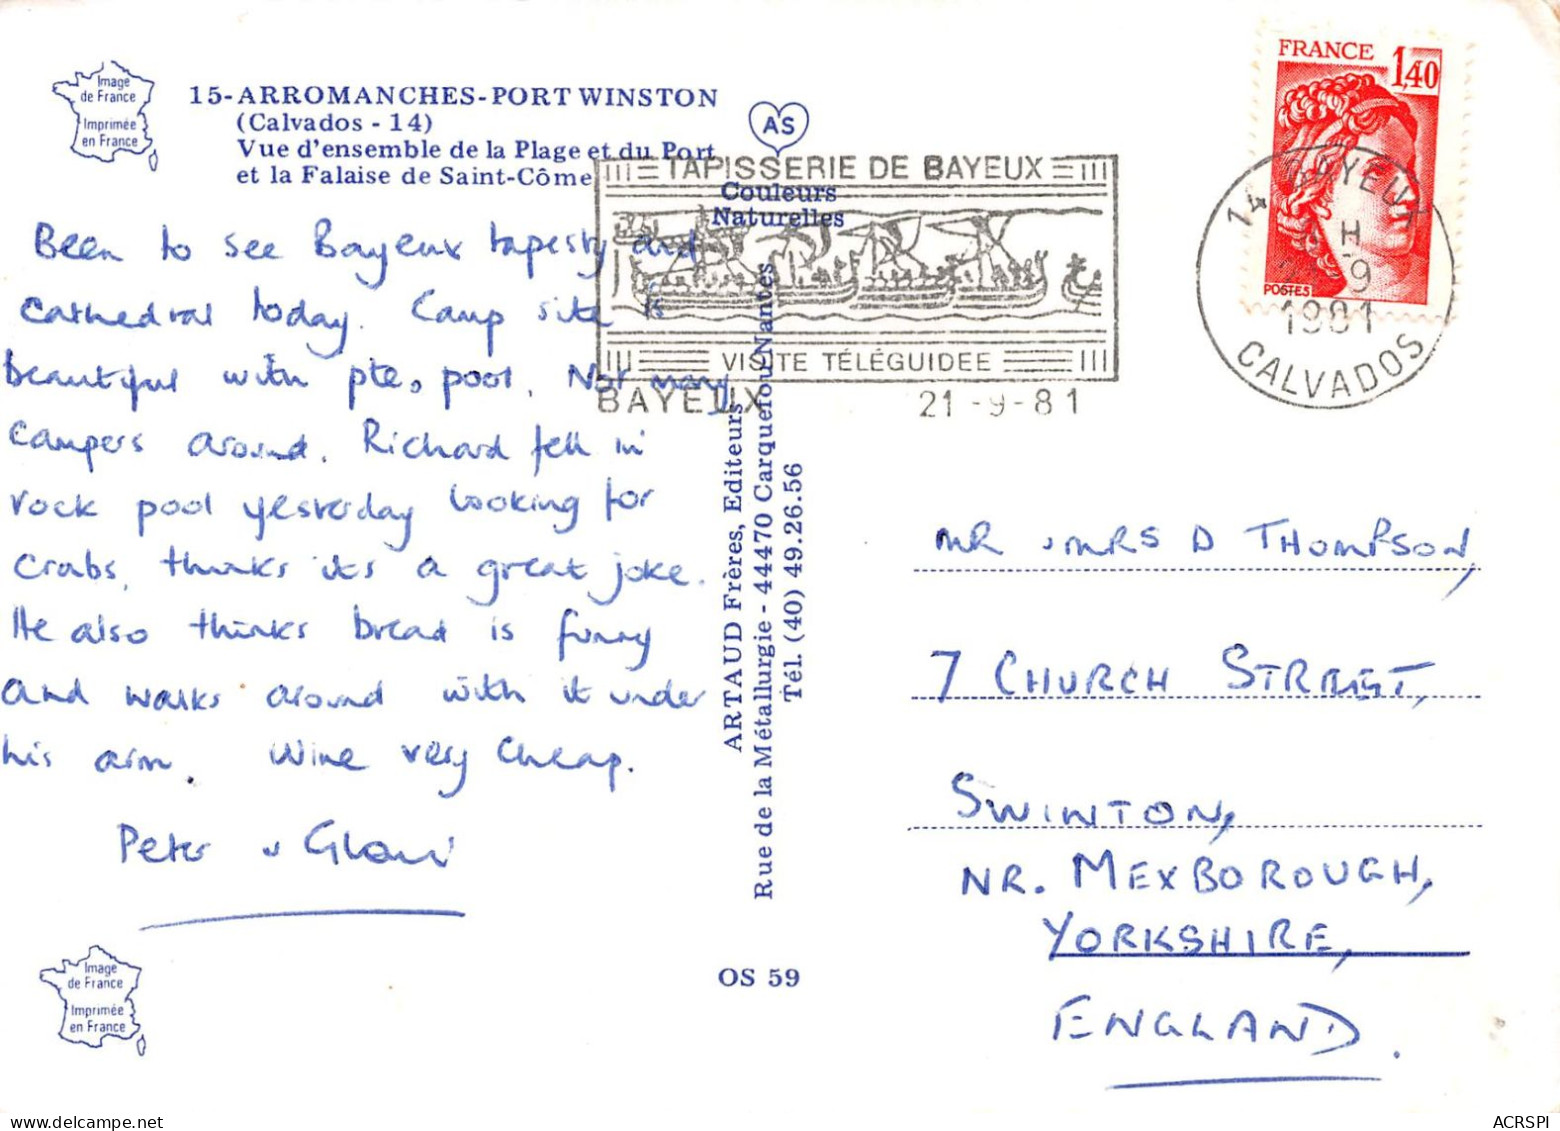 Image
de France
Imprimée
en France
15-ARROMANCHES-PORT WINSTON
(Calvados - 14)
Vue d'ensemble de la Plage et du Port
et la Falaise de Saint-Côme
AS
Couleurs
Naturelles
TAPISSERIE DE BAYEUX
VISITE TÉLÉGUIDEE
BAYEUX 21-9-81
FRANCE 1,40
POSTES
14 BAYEUX
H
-9
1981
CALVADOS
Been to see Bayeux tapesty and
Cathedral today. Camp site is
beautiful with pte, pool. Not many
campers around. Richard fell in
rock pool yesterday looking for
crabs, thinks its a great joke.
He also thinks bread is funny
and walks around with it under
his arm. Wine very cheap.
Peter &
ARTAUD Frères, Editeurs
Rue de la Métallurgie - 44470 Carquefou/Nantes
Tél. (40) 49.26.56
MR & MRS D THOMPSON,
7 CHURCH STREET,
SWINTON,
NR. MEXBOROUGH,
YORKSHIRE,
ENGLAND.
Image
de France
Imprimée
en France
OS 59
ACRSPI